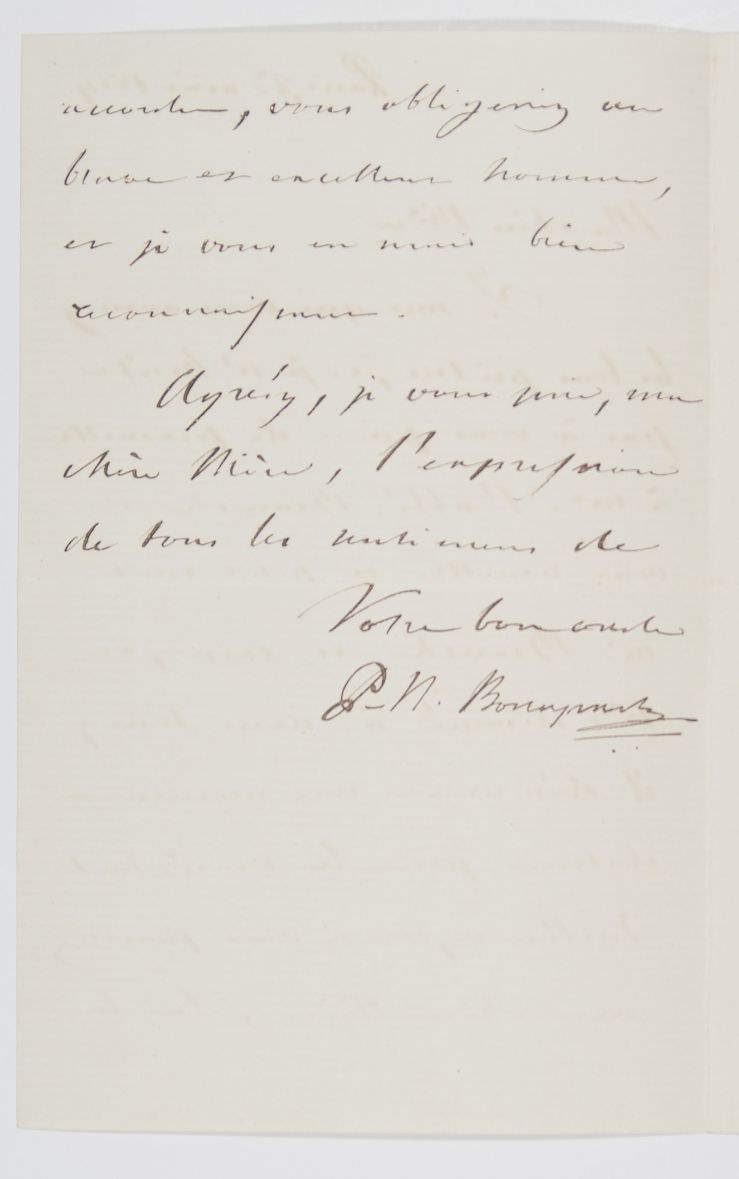 accorder, vous obligeriez un
brave et excellent homme,
et je vous en serais bien
reconnaissant.
Agréez, je vous prie, ma
chère Nièce, l'expression
de tous les sentimens de
Votre bon oncle
P-N. Bonaparte